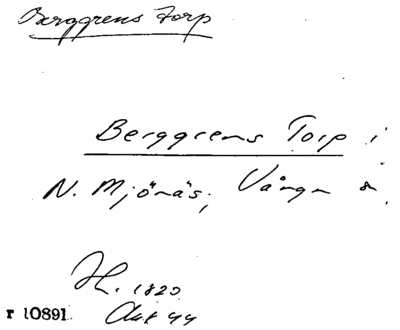 Berggrens torp
Berggrens Torp i
N. Mjönäs, Vånga s.
Hf. 1820
r 10891 Akt 44